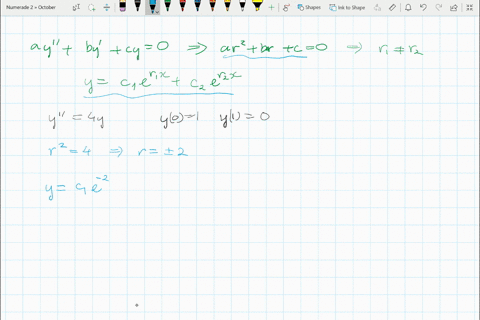 Numerade 2 × October
Shapes Ink to Shape
ay'' + by' + cy = 0 ⇒ ar² + br + c = 0 ⇒ r₁ ≠ r₂
y = c₁e^{r₁x} + c₂e^{r₂x}
y'' = 4y y(0) = 1 y(1) = 0
r² = 4 ⇒ r = ±2
y = c₁e^{-2}